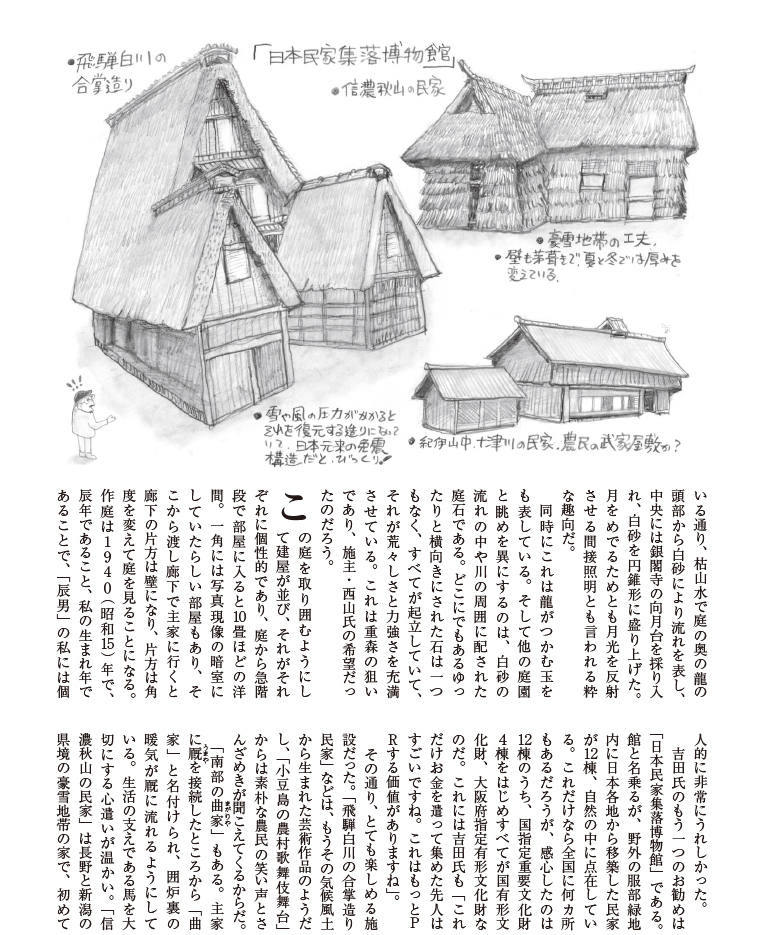 「日本民家集落博物館」
●飛騨白川の
合掌造り
●信濃秋山の民家
●豪雪地帯の工夫.
●壁も茅葺きで、夏と冬では厚みを
変えている.
●雪や風の圧力がかかると
それを復元する造りになって
いて、日本元来の免震
構造、だと、びっくり!
●紀伊山中、十津川の民家.農民の武家屋敷か?
いる通り、枯山水で庭の奥の龍の
頭部から白砂により流れを表し、
中央には銀閣寺の向月台を採り入
れ、白砂を円錐形に盛り上げた。
月をめでるためとも月光を反射
させる間接照明とも言われる粋
な趣向だ。
同時にこれは龍がつかむ玉を
も表している。そして他の庭園
と眺めを異にするのは、白砂の
流れの中や川の周囲に配された
庭石である。どこにでもあるゆっ
たりと横向きにされた石は一つ
もなく、すべてが起立していて、
それが荒々しさと力強さを充満
させている。これは重森の狙い
であり、施主・西山氏の希望だっ
たのだろう。
この庭を取り囲むようにし
て建屋が並び、それがそれ
ぞれに個性的であり、庭から急階
段で部屋に入ると10畳ほどの洋
間。一角には写真現像の暗室に
していたらしい部屋もあり、そ
こから渡し廊下で主家に行くと
廊下の片方は壁になり、片方は角
度を変えて庭を見ることになる。
作庭は1940(昭和15)年で、
辰年であること、私の生まれ年で
あることで、「辰男」の私には個
人的に非常にうれしかった。
吉田氏のもう一つのお勧めは
「日本民家集落博物館」である。
館と名乗るが、野外の服部緑地
内に日本各地から移築した民家
が12棟、自然の中に点在してい
る。これだけなら全国に何カ所
もあるだろうが、感心したのは
12棟のうち、国指定重要文化財
4棟をはじめすべてが国有形文
化財、大阪府指定有形文化財な
のだ。これには吉田氏も「これ
だけお金を遣って集めた先人は
すごいですね。これはもっとP
Rする価値がありますね」。
その通り、とても楽しめる施
設だった。「飛騨白川の合掌造り
民家」などは、もうその気候風土
から生まれた芸術作品のようだ
し、「小豆島の農村歌舞伎舞台」
からは素朴な農民の笑い声とさ
んざめきが聞こえてくるからだ。
「南部の曲家」もある。主家
に厩を接続したところから「曲
家」と名付けられ、囲炉裏の
暖気が厩に流れるようにして
いる。生活の支えである馬を大
切にする心遣いが温かい。「信
濃秋山の民家」は長野と新潟の
県境の豪雪地帯の家で、初めて